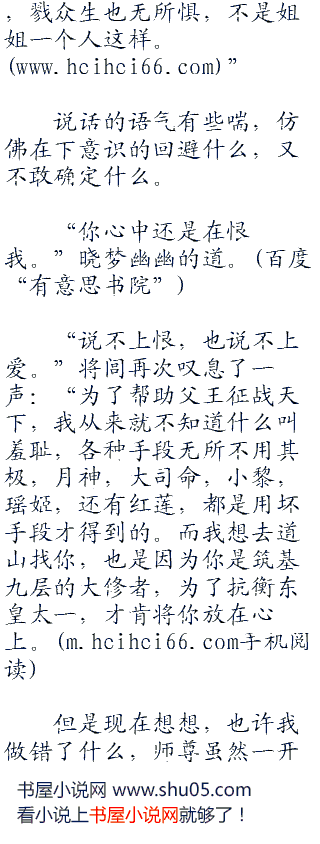 ，戮众生也无所惧，不是姐
姐一个人这样。
(www.hcihci66.com)”
说话的语气有些喘，仿
佛在下意识的回避什么，又
不敢确定什么。
“你心中还是在恨
我。”晓梦幽幽的道。(百度
“有意思书院”)
“说不上恨，也说不上
爱。”将闾再次叹息了一
声：“为了帮助父王征战天
下，我从来就不知道什么叫
羞耻，各种手段无所不用其
极，月神，大司命，小黎，
瑶姬，还有红莲，都是用坏
手段才得到的。而我想去道
山找你，也是因为你是筑基
九层的大修者，为了抗衡东
皇太一，才肯将你放在心
上。(m.hcihci66.com手机阅
读)
但是现在想想，也许我
做错了什么，师尊虽然一开
书屋小说网 www.shu05.com
看小说上书屋小说网就够了！